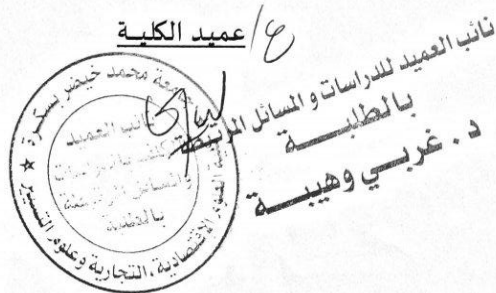 ع/ عميد الكلية
نائب العميد للدراسات و المسائل المرتبطة
بالطلبة
د. غربي وهيبة
جامعة محمد خيضر بسكرة
الاقتصادية، التجارية وعلوم التسيير
نائب العميد
المكلف بالدراسات
والمسائل المرتبطة
بالطلبة